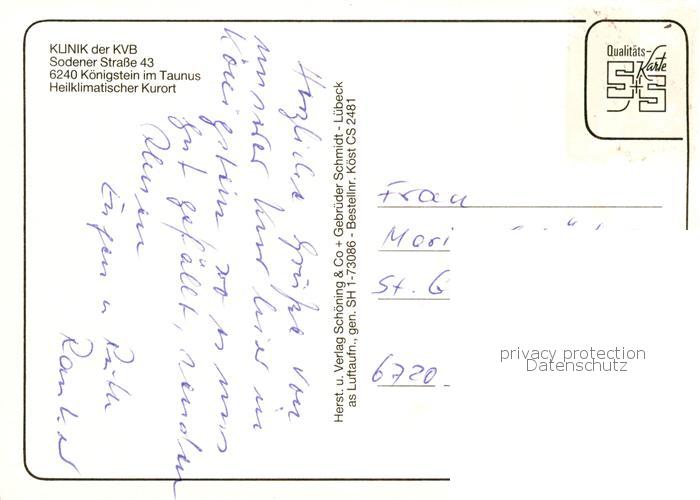 KLINIK der KVB
Sodener Straße 43
6240 Königstein im Taunus
Heilklimatischer Kurort
Herzliche Grüße von
unserer Kur hier in
Königstein wo es uns
gut gefällt, senden
Ihnen
Eugen u Ruth
Herst. u. Verlag Schöning & Co + Gebrüder Schmidt - Lübeck
as Luftaufn., gen. SH 1-73086 - Bestellnr. Köst CS 2481
Qualitäts-
Karte
S+S
Frau
Mari
St. G
6720
privacy protection
Datenschutz